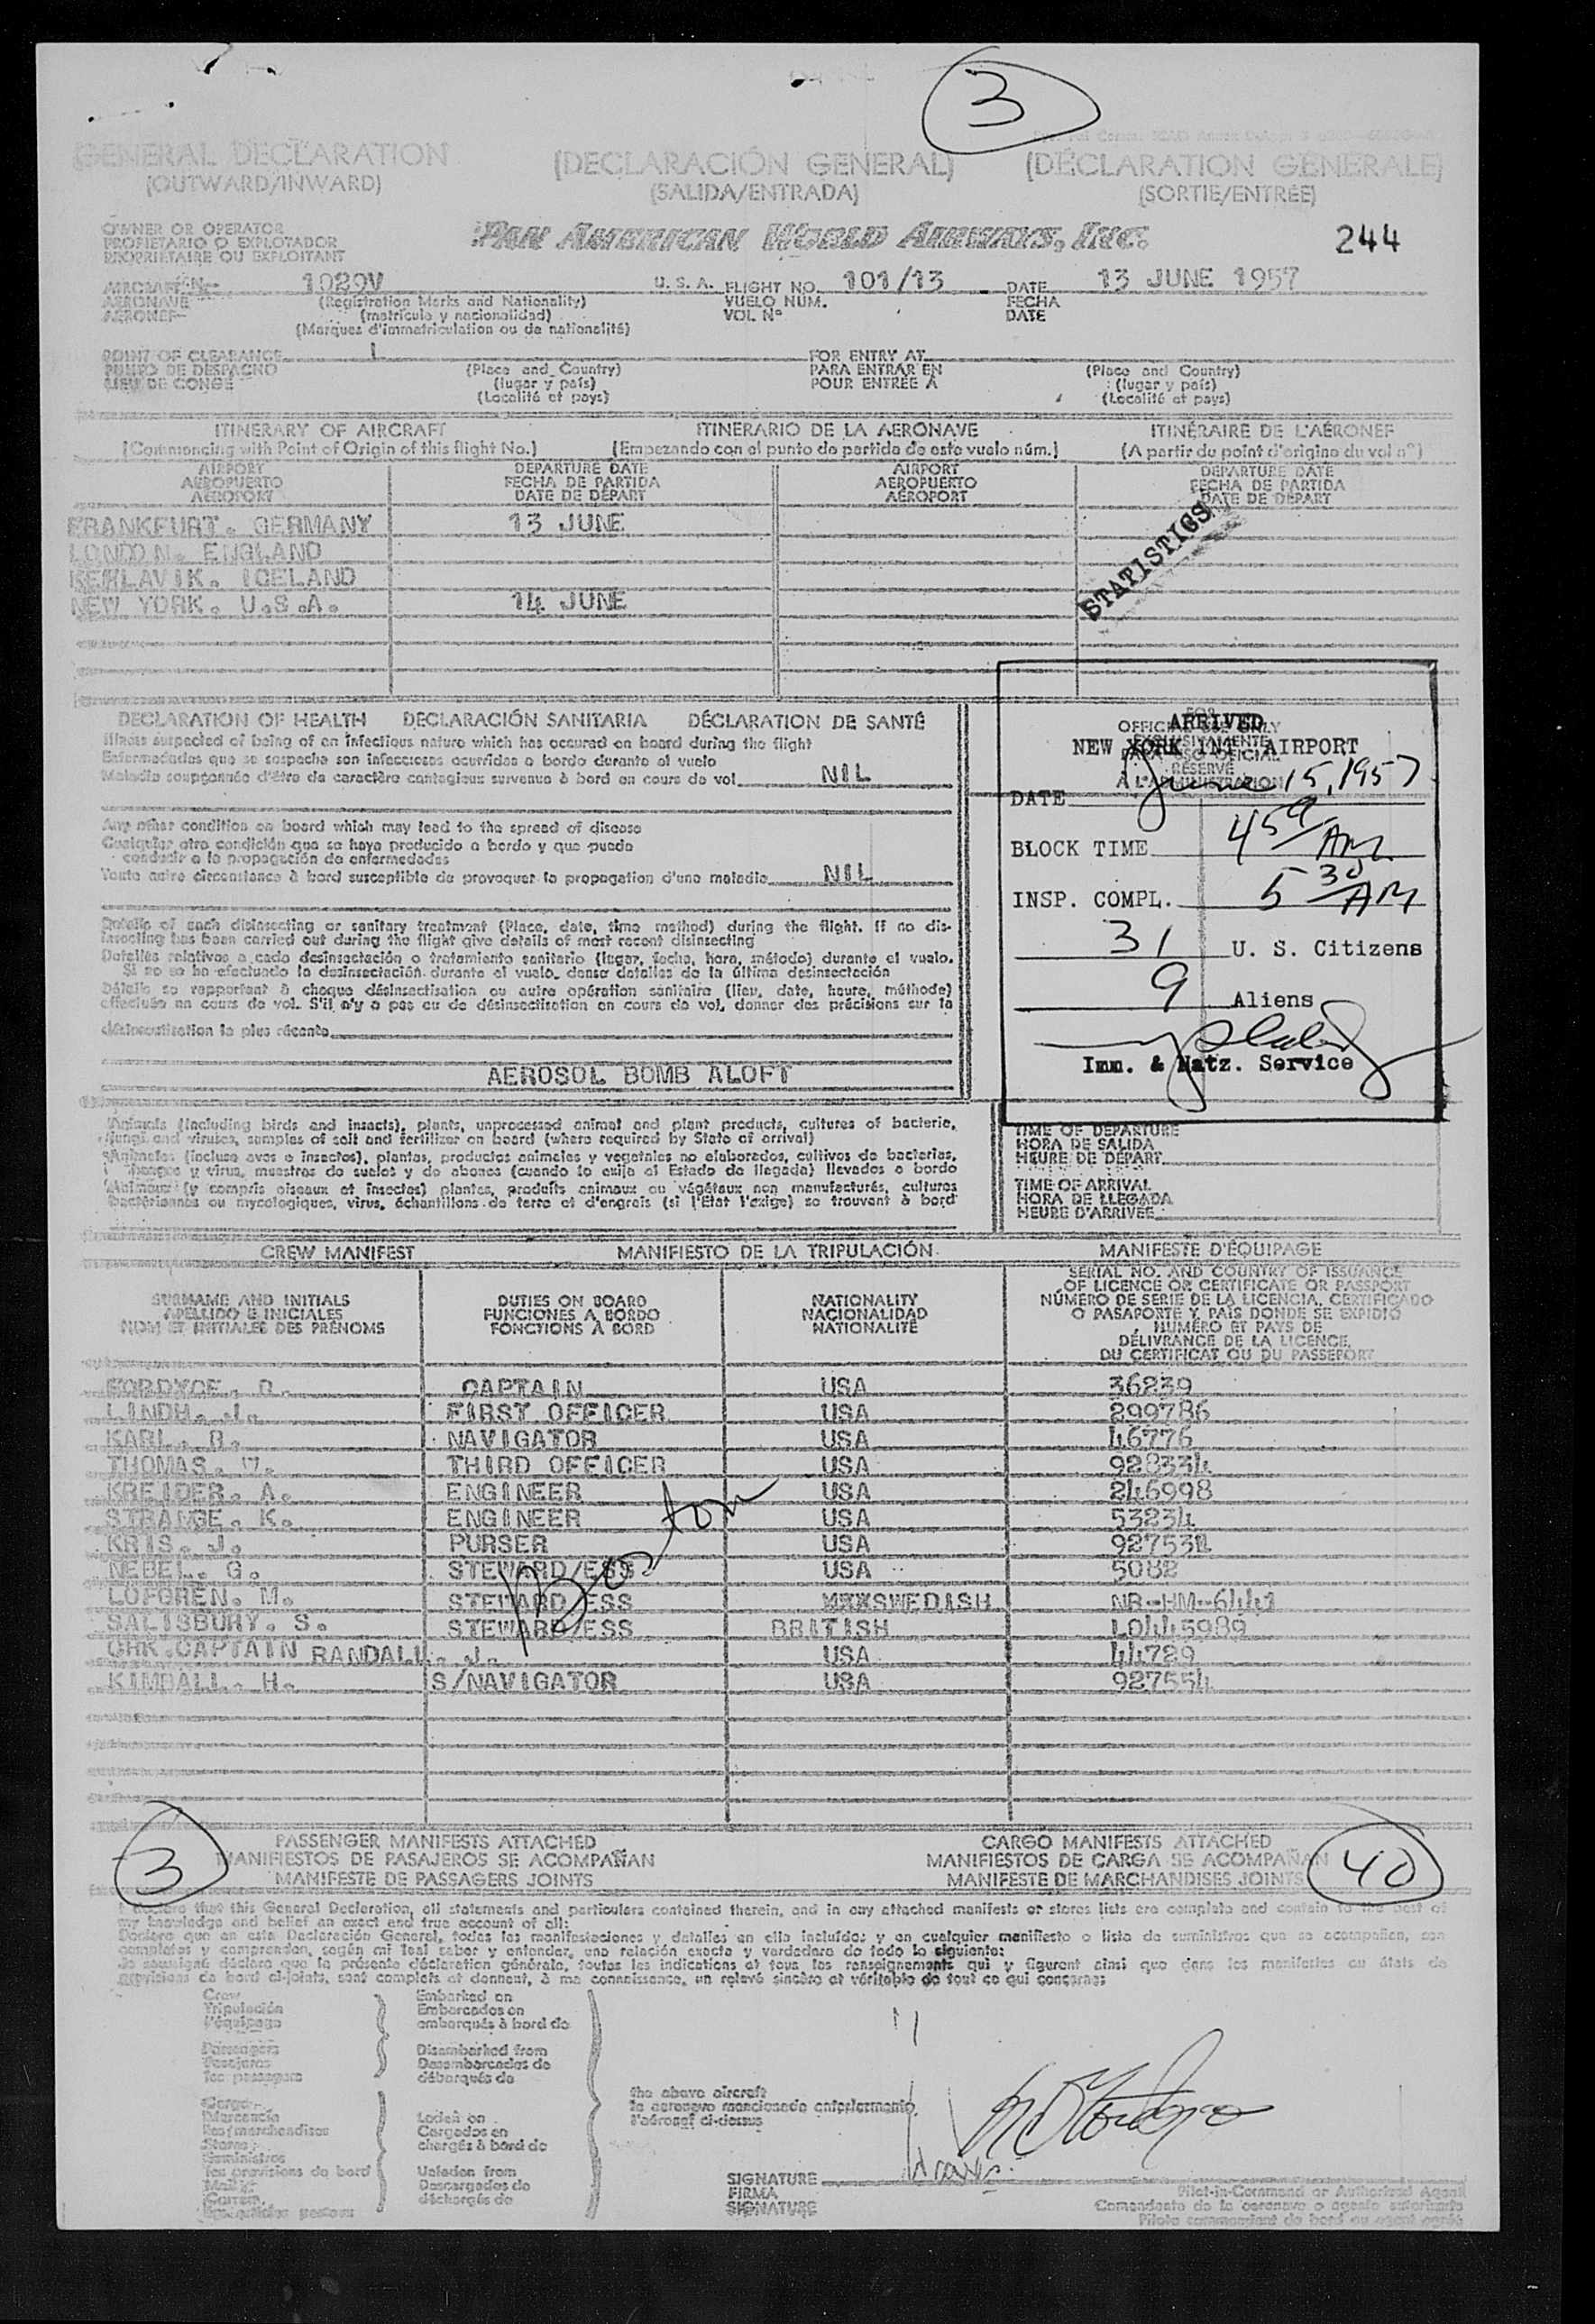 3
GENERAL DECLARATION (DECLARACIÓN GENERAL) (DÉCLARATION GÉNÉRALE)
(OUTWARD/INWARD) (SALIDA/ENTRADA) (SORTIE/ENTRÉE)
OWNER OR OPERATOR
PROPIETARIO O EXPLOTADOR
PROPRIETAIRE OU EXPLOITANT
PAN AMERICAN WORLD AIRWAYS, INC. 244
AIRCRAFT N- 1029V U. S. A. FLIGHT NO. 101/13 DATE 13 JUNE 1957
AERONAVE (Registration Marks and Nationality) VUELO NÚM. FECHA
AERONEF (matrícula y nacionalidad) VOL Nº DATE
(Marques d'immatriculation ou de nationalité)
POINT OF CLEARANCE FOR ENTRY AT
PUNTO DE DESPACHO (Place and Country) PARA ENTRAR EN (Place and Country)
LIEU DE CONGÉ (lugar y país) POUR ENTRÉE A (lugar y país)
(Localité et pays) (Localité et pays)
ITINERARY OF AIRCRAFT ITINERARIO DE LA AERONAVE ITINÉRAIRE DE L'AÉRONEF
(Commencing with Point of Origin of this flight No.) (Empezando con el punto de partida de este vuelo núm.) (A partir du point d'origine du vol nº)
AIRPORT DEPARTURE DATE AIRPORT DEPARTURE DATE
AEROPUERTO FECHA DE PARTIDA AEROPUERTO FECHA DE PARTIDA
AÉROPORT DATE DE DÉPART AÉROPORT DATE DE DÉPART
FRANKFURT. GERMANY 13 JUNE
LONDON. ENGLAND
KEFLAVIK. ICELAND
NEW YORK. U.S.A. 14 JUNE
STATISTICS
DECLARATION OF HEALTH DECLARACIÓN SANITARIA DÉCLARATION DE SANTÉ
Illness suspected of being of an infectious nature which has occured on board during the flight
Enfermedades que se sospecha son infecciosas ocurridas a bordo durante el vuelo
Maladie soupçonnée d'être de caractère contagieux survenue à bord en cours de vol NIL
Any other condition on board which may lead to the spread of disease
Cualquier otra condición que se haya producido a bordo y que pueda
conducir a la propagación de enfermedades
Toute autre circonstance à bord susceptible de provoquer la propagation d'une maladie NIL
Details of each disinsecting or sanitary treatment (Place, date, time method) during the flight. If no dis-
insecting has been carried out during the flight give details of most recent disinsecting
Detalles relativos a cada desinsectación o tratamiento sanitario (lugar, fecha, hora, método) durante el vuelo.
Si no se ha efectuado la desinsectación durante el vuelo, dense detalles de la última desinsectación
Détails se rapportant à chaque désinsectisation ou autre opération sanitaire (lieu, date, heure, méthode)
effectuée en cours de vol. S'il n'y a pas eu de désinsectisation en cours de vol, donner des précisions sur la
désinsectisation la plus récente
AEROSOL BOMB ALOFT
FOR
OFFICIAL USE ONLY
EXCLUSIVAMENTE
PARA USO OFICIAL
RÉSERVÉ
A L'ADMINISTRATION
ARRIVED
NEW YORK INT. AIRPORT
DATE June 15, 1957
BLOCK TIME 4 59 AM
INSP. COMPL. 5 30 AM
31 U. S. Citizens
9 Aliens
Imm. & Natz. Service
Animals (including birds and insects), plants, unprocessed animal and plant products, cultures of bacteria,
fungi and viruses, samples of soil and fertilizer on board (where required by State of arrival)
Animales (incluso aves e insectos), plantas, productos animales y vegetales no elaborados, cultivos de bacterias,
hongos y virus, muestras de suelos y de abonos (cuando lo exija el Estado de llegada) llevados a bordo
Animaux (y compris oiseaux et insectes) plantes, produits animaux ou végétaux non manufacturés, cultures
bactériennes ou mycologiques, virus, échantillons de terre et d'engrais (si l'État l'exige) se trouvant à bord
TIME OF DEPARTURE
HORA DE SALIDA
HEURE DE DÉPART
TIME OF ARRIVAL
HORA DE LLEGADA
HEURE D'ARRIVÉE
CREW MANIFEST MANIFIESTO DE LA TRIPULACIÓN MANIFESTE D'ÉQUIPAGE
SURNAME AND INITIALS
APELLIDO E INICIALES
NOM ET INITIALES DES PRÉNOMS
DUTIES ON BOARD
FUNCIONES A BORDO
FONCTIONS À BORD
NATIONALITY
NACIONALIDAD
NATIONALITÉ
SERIAL NO. AND COUNTRY OF ISSUANCE
OF LICENCE OR CERTIFICATE OR PASSPORT
NÚMERO DE SERIE DE LA LICENCIA, CERTIFICADO
O PASAPORTE Y PAÍS DONDE SE EXPIDIÓ
NUMÉRO ET PAYS DE
DÉLIVRANCE DE LA LICENCE,
DU CERTIFICAT OU DU PASSEPORT
FORDYCE. D. CAPTAIN USA 36239
LINDH. J. FIRST OFFICER USA 299786
KARL. B. NAVIGATOR USA 46776
THOMAS. W. THIRD OFFICER USA 928334
KREIDER. A. ENGINEER USA 246998
STRANGE. K. ENGINEER USA 53234
KRIS. J. PURSER USA 927534
NEBEL. G. STEWARD/ESS USA 5082
LOFGREN. M. STEWARD/ESS XXXSWEDISH NR-HM-6443
SALISBURY. S. STEWARD/ESS BRITISH L0445989
CHK.CAPTAIN RANDALL. J. USA 44729
KIMBALL. H. S/NAVIGATOR USA 927554
Boston
3 PASSENGER MANIFESTS ATTACHED CARGO MANIFESTS ATTACHED 40
MANIFIESTOS DE PASAJEROS SE ACOMPAÑAN MANIFIESTOS DE CARGA SE ACOMPAÑAN
MANIFESTE DE PASSAGERS JOINTS MANIFESTE DE MARCHANDISES JOINTS
I declare that this General Declaration, all statements and particulars contained therein, and in any attached manifests or stores lists are complete and contain to the best of
my knowledge and belief an exact and true account of all:
Declaro que en esta Declaración General, todas las manifestaciones y detalles en ella incluidos y en cualquier manifiesto o lista de suministros que se acompañen, son
completos y comprenden, según mi leal saber y entender, una relación exacta y verdadera de todo lo siguiente:
Je soussigné déclare que la présente déclaration générale, toutes les indications et tous les renseignements qui y figurent ainsi que dans les manifestes ou états de
provisions de bord ci-joints, sont complets et donnent, à ma connaissance, un relevé sincère et véritable de tout ce qui concerne:
Crew
Tripulación
l'équipage
Passengers
Pasajeros
les passagers
Embarked on
Embarcados en
embarqués à bord de
Disembarked from
Desembarcados de
débarqués de
Cargo
Mercancía
les marchandises
Stores
Suministros
les provisions de bord
Mail
Correo
Loaded on
Cargados en
chargés à bord de
Unladen from
Descargados de
déchargés de
the above aircraft
la aeronave mencionada anteriormente
l'aéronef ci-dessus
SIGNATURE
FIRMA
SIGNATURE
Pilot-in-Command or Authorized Agent
Comandante de la aeronave o agente autorizado
Pilote commandant de bord ou agent agréé